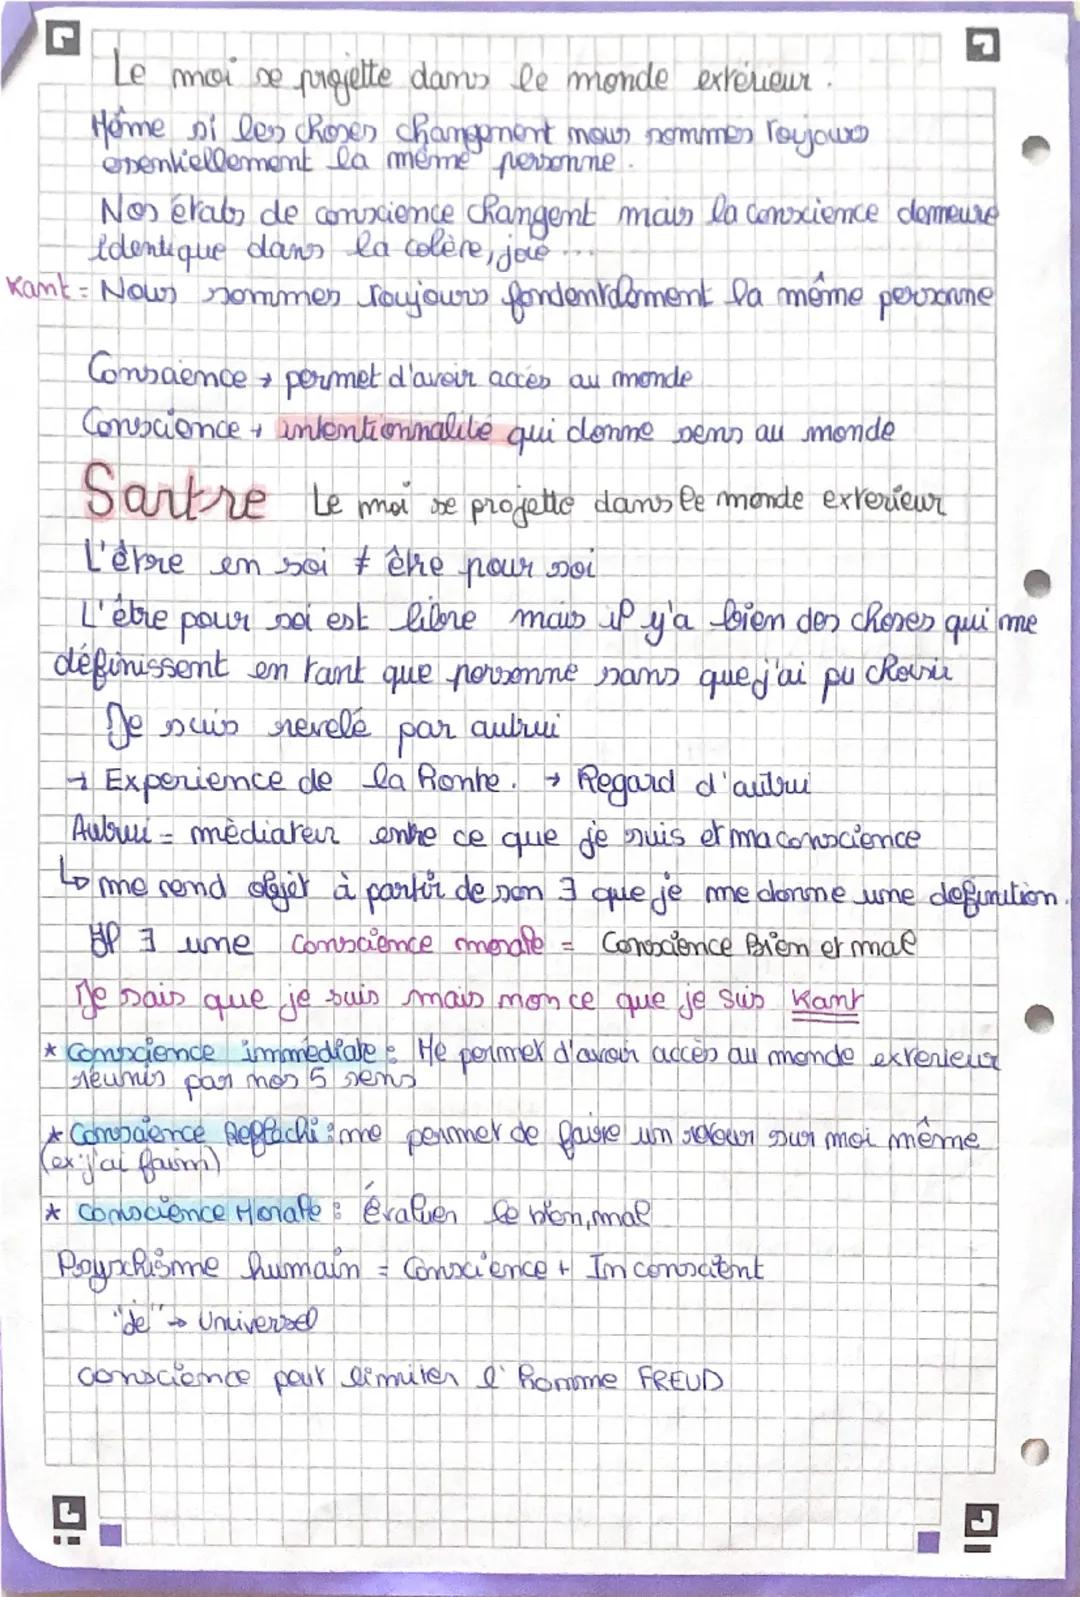 Le moi se projette dans le monde extérieur.
Même si les choses changement nous sommes toujours
essentiellement la même personne.
Nos états de conscience changent mais la conscience demeure
identique dans la colère, joie ...
Kant = Nous sommes toujours fondamentalement la même personne
Conscience → permet d'avoir accès au monde
Conscience → intentionnalité qui donne sens au monde
Sartre Le moi se projette dans le monde exterieur
L'être en soi ≠ être pour soi
L'être pour soi est libre mais il y'a bien des choses qui me
définissent en tant que personne sans que j'ai pu choisir
Je suis revelé par autrui
→ Experience de la honte. → Regard d'autrui
Autrui = médiateur entre ce que je suis et ma conscience
↳ me rend objet à partir de son ∃ que je me donne une definition.
Il ∃ une conscience morale = Conscience Bien et mal
Je sais que je suis mais non ce que je suis Kant
* Conscience immédiate : Me permet d'avoir accès au monde exterieur
réunis par mes 5 sens
* Conscience Reflechi : me permet de faire un retour sur moi même
(ex: j'ai faim)
* conscience Morale : évaluer le bien, mal
Psychisme humain = Conscience + Inconscient
"de" → Universel
conscience peut limiter l'homme FREUD